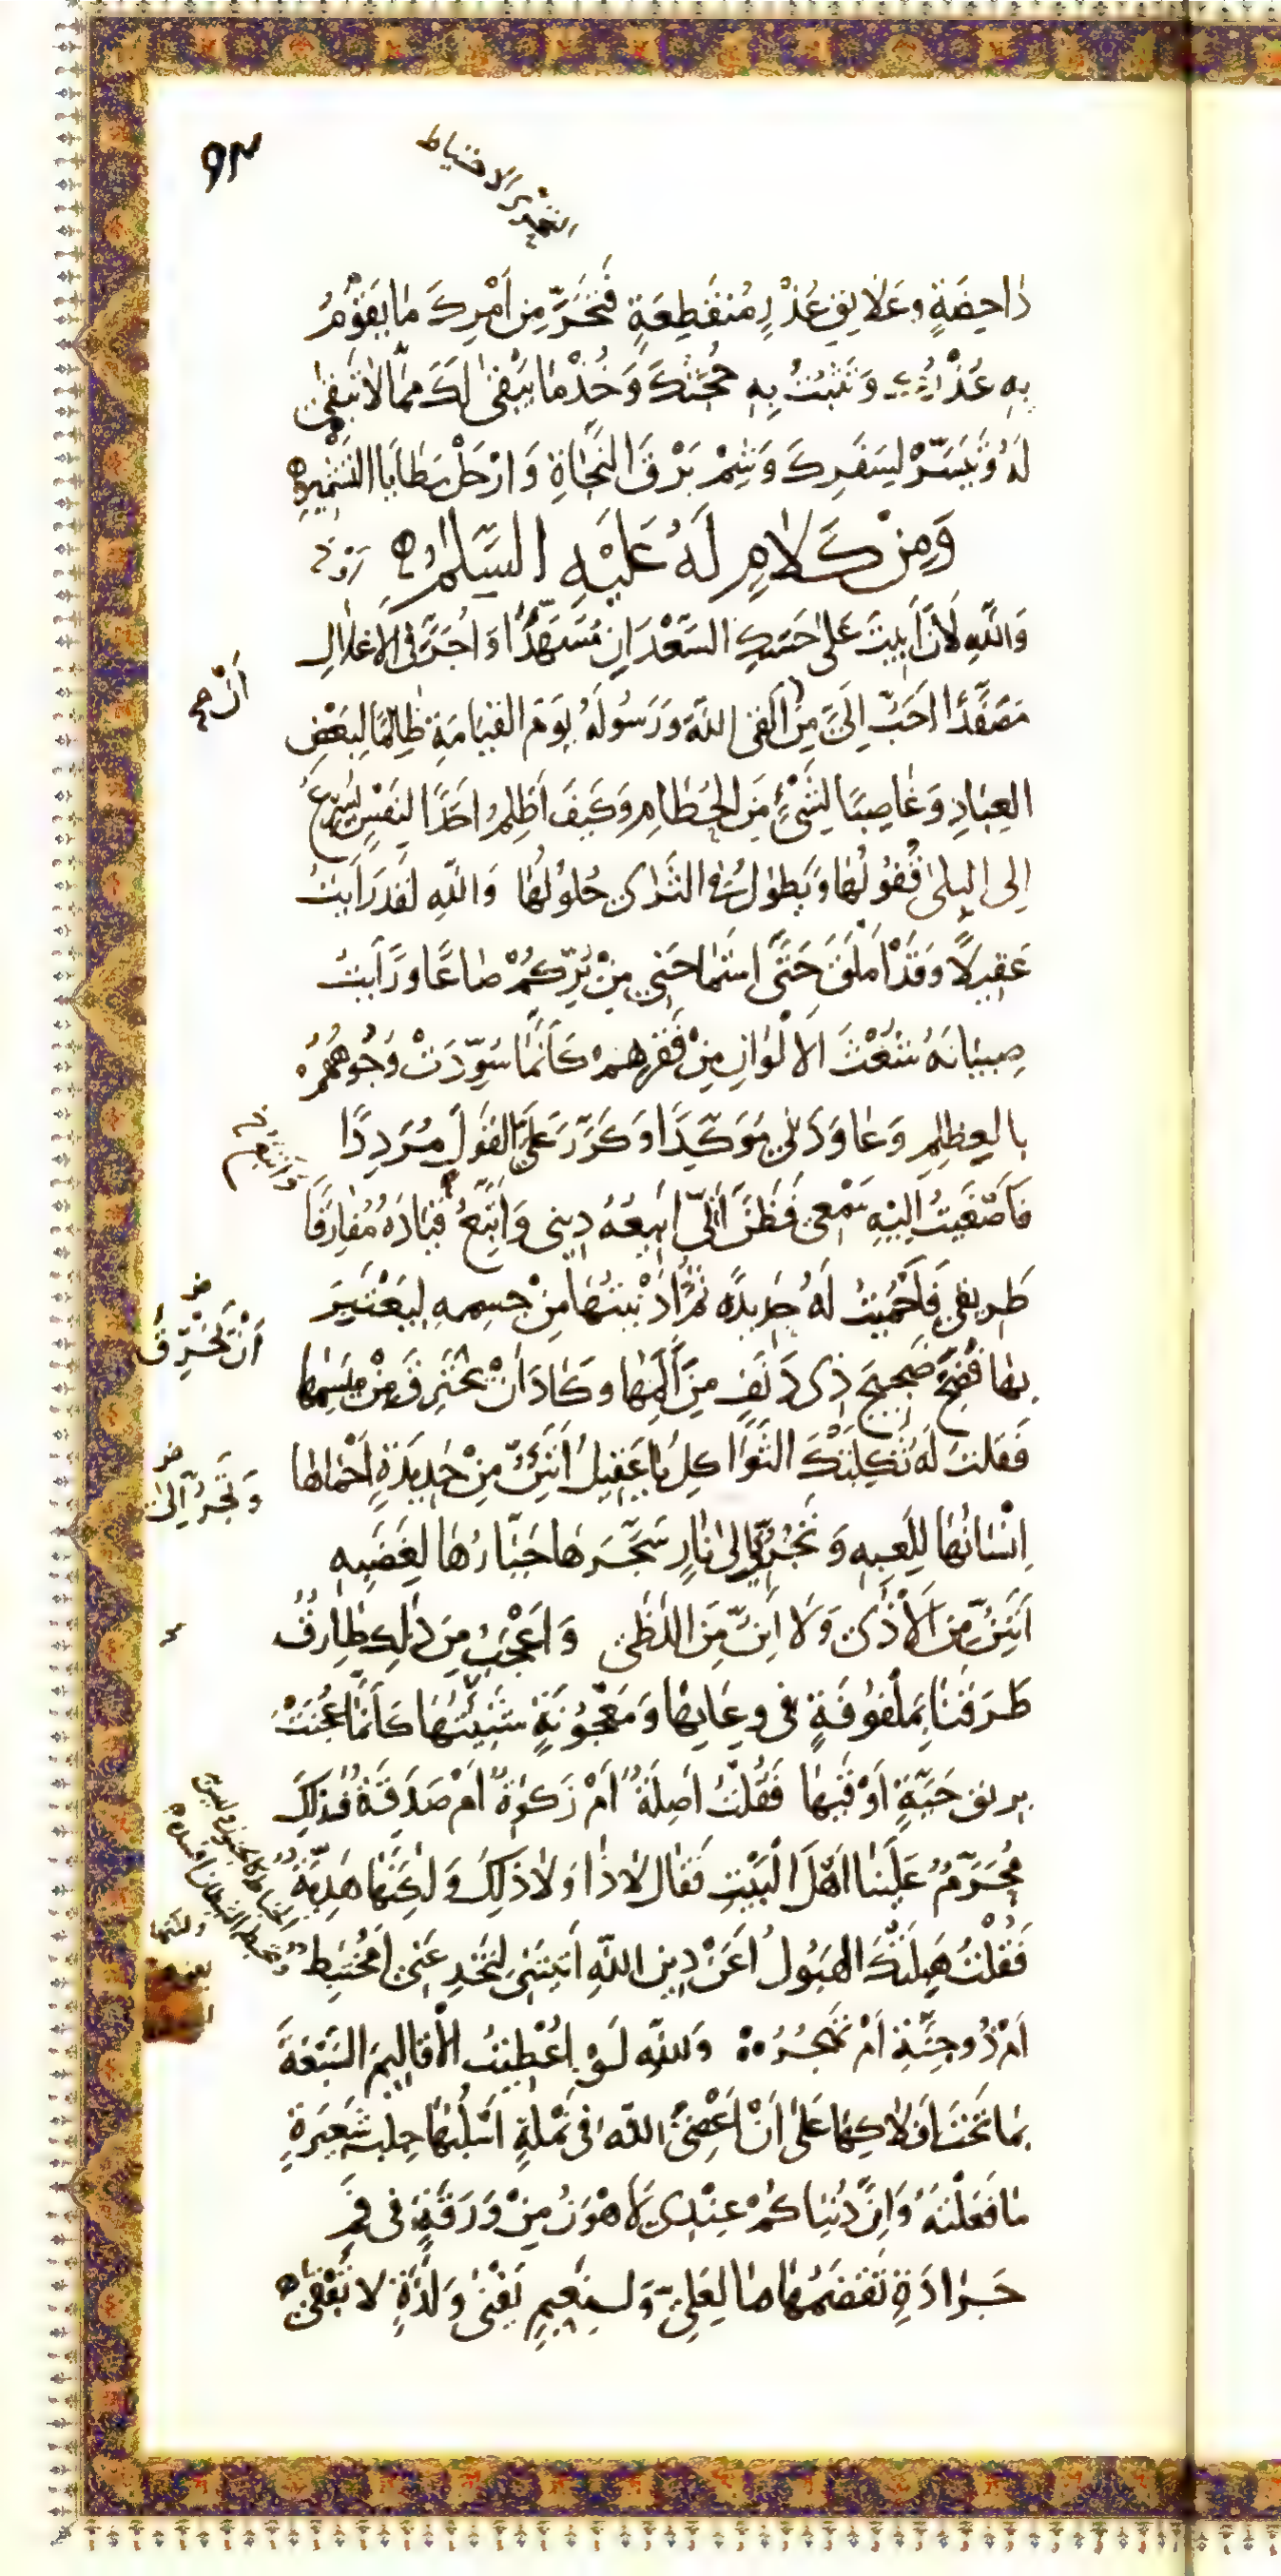 ٩٣
التحري الاحتياط
دٰاحِضَةٍ وعَلٰائِقِ عُذْرٍ مُنقَطِعَةٍ فَتَحَرَّ مِن اَمْرِكَ مٰا يَقوُمُ
بِهِ عُذْرُكَ وَتَثبُتُ بِهِ حُجَّتُكَ وَخُذْ مٰا يَبْقىٰ لَكَ مِمّٰا لاٰ تَبقىٰ
لَهُ وَتَيَسَّرْ لِسَفَرِكَ وَشِمْ بَرْقَ النَّجٰاةِ وَارْحَلْ مَطٰايَا التَّشْمِيرِ
وَمِنْ كَلاٰمٍ لَهُ عَلَيْهِ السَّلٰمُ
وَاللهِ لَاَنْ اَبِيتَ عَلىٰ حَسَكِ السَّعْدَانِ مُسَهَّدًا وَاُجَرَّ فِى الْاَغلٰالِ
اَنْ
مُصَفَّدًا اَحَبُّ اِلَىَّ مِنْ اَلْقَى اللهَ وَرَسُولَهُ يَومَ القِيٰامَةِ ظٰالِمًا لِبَعْضِ
العِبٰادِ وَغٰاصِبًا لِشَىْءٍ مِنَ الْحُطٰامِ وَكَيفَ اَظلِمُ اَحَدًا لِنَفْسٍ يُسْرِعُ
اِلى البِلىٰ قُفوُلُهٰا وَيَطوُلُ فِى الثَّرىٰ حُلوُلُهٰا وَاللهِ لَقَد رَاَيتُ
عَقِيلًا وَقَدْ اَمْلَقَ حَتَّى اسْتَمٰاحَنِى مِنْ بُرِّكُمْ صٰاعًا وَرَاَيتُ
صِبيٰانَهُ شُعْثَ الْاَلْوٰانِ مِنْ فَقرِهِمْ كَاَنَّمٰا سُوِّدَتْ وُجُوهُهُمْ
بِالعِظلِمِ وَعٰاوَدَنِى مُؤَكِّدًا وَكَرَّرَ عَلَىَّ القَولَ مُرَدِدًا
وَاَتَّبِعُ
فَاَصْغَيتُ اِلَيْهِ سَمْعِى فَظَنَّ اَنِّى اَبِيعُهُ دِينى وَاَتَّبِعُ قِيٰادَهُ مُفٰارِقًا
طَرِيقى فَاَحْمَيتُ لَهُ حَدِيدَةً ثُمَّ اَدْنَيتُهٰا مِنْ جِسمِهِ لِيَعْتَبِرَ
اَنْ يُحَرِّقَ
بِهٰا فَضَجَّ ضَجِيجَ ذِى دَنَفٍ مِنْ اَلَمِهٰا وكٰادَ اَنْ يَحْتَرِقَ مِنْ مَيسَمِهٰا
فَقُلتُ لَهُ ثَكِلَتْكَ الثَّوٰاكِلُ يٰا عَقِيلُ اَتَئِنُّ مِنْ حَدِيدَةٍ اَحْمٰاهٰا
وَتَجُرُّنِى اِلىٰ
اِنْسٰانُهٰا لِلَعِبِهِ وَتَجُرُّنِى اِلىٰ نٰارٍ سَجَّرَهٰا جَبّٰارُهٰا لِغَضَبِهِ
اَتَئِنُّ مِنَ الْاَذٰى وَلاٰ اَئِنُّ مِنْ اللَظىٰ وَاَعْجَبُ مِن ذٰلِكَ طٰارِقٌ
طَرَقَنٰا بِمَلْفوُفَةٍ فِى وِعٰائِهٰا وَمَعْجوُنَةٍ شَنِئْتُهٰا كَاَنَّمٰا عُجِنَتْ
بِرِيقِ حَيَّةٍ اَوْ قَيْئِهٰا فَقُلْتُ اَصِلَةٌ اَمْ زَكوٰةٌ اَمْ صَدَقَةٌ فَذٰلِكَ
مُحَرَّمٌ عَلَينٰا اَهْلَ الْبَيْتِ فَقٰالَ لاٰ ذٰا وَلاٰ ذٰلِكَ وَلٰكِنَّهٰا هَدِيَّةٌ
فَقُلْتُ هَبِلَتْكَ الهَبُولُ اَعَنْ دِينِ اللهِ اَتَيتَنِى لِتَخْدِعَنِى اَمُخْتَبِطٌ
اَمْ ذُو جِنَّةٍ اَمْ تَهْجُرُ وَاللهِ لَوْ اُعْطِيتُ الْاَقٰالِيمَ السَّبْعَةَ
بِمٰا تَحْتَ اَفلاٰكِهٰا عَلىٰ اَنْ اَعْصِىَ اللهَ فِى نَمْلَةٍ اَسْلُبُهٰا جِلْبَ شَعِيرَةٍ
مٰا فَعَلْتُهُ وَاِنَّ دُنْيٰاكُمْ عِنْدِى لَاَهْوَنُ مِنْ وَرَقَةٍ فِى فَمِ
جَرٰادَةٍ تَقضَمُهٰا مٰا لِعَلِىٍّ وَلِنَعِيمٍ يَفْنىٰ وَلَذَّةٍ لاٰ تَبْقىٰ